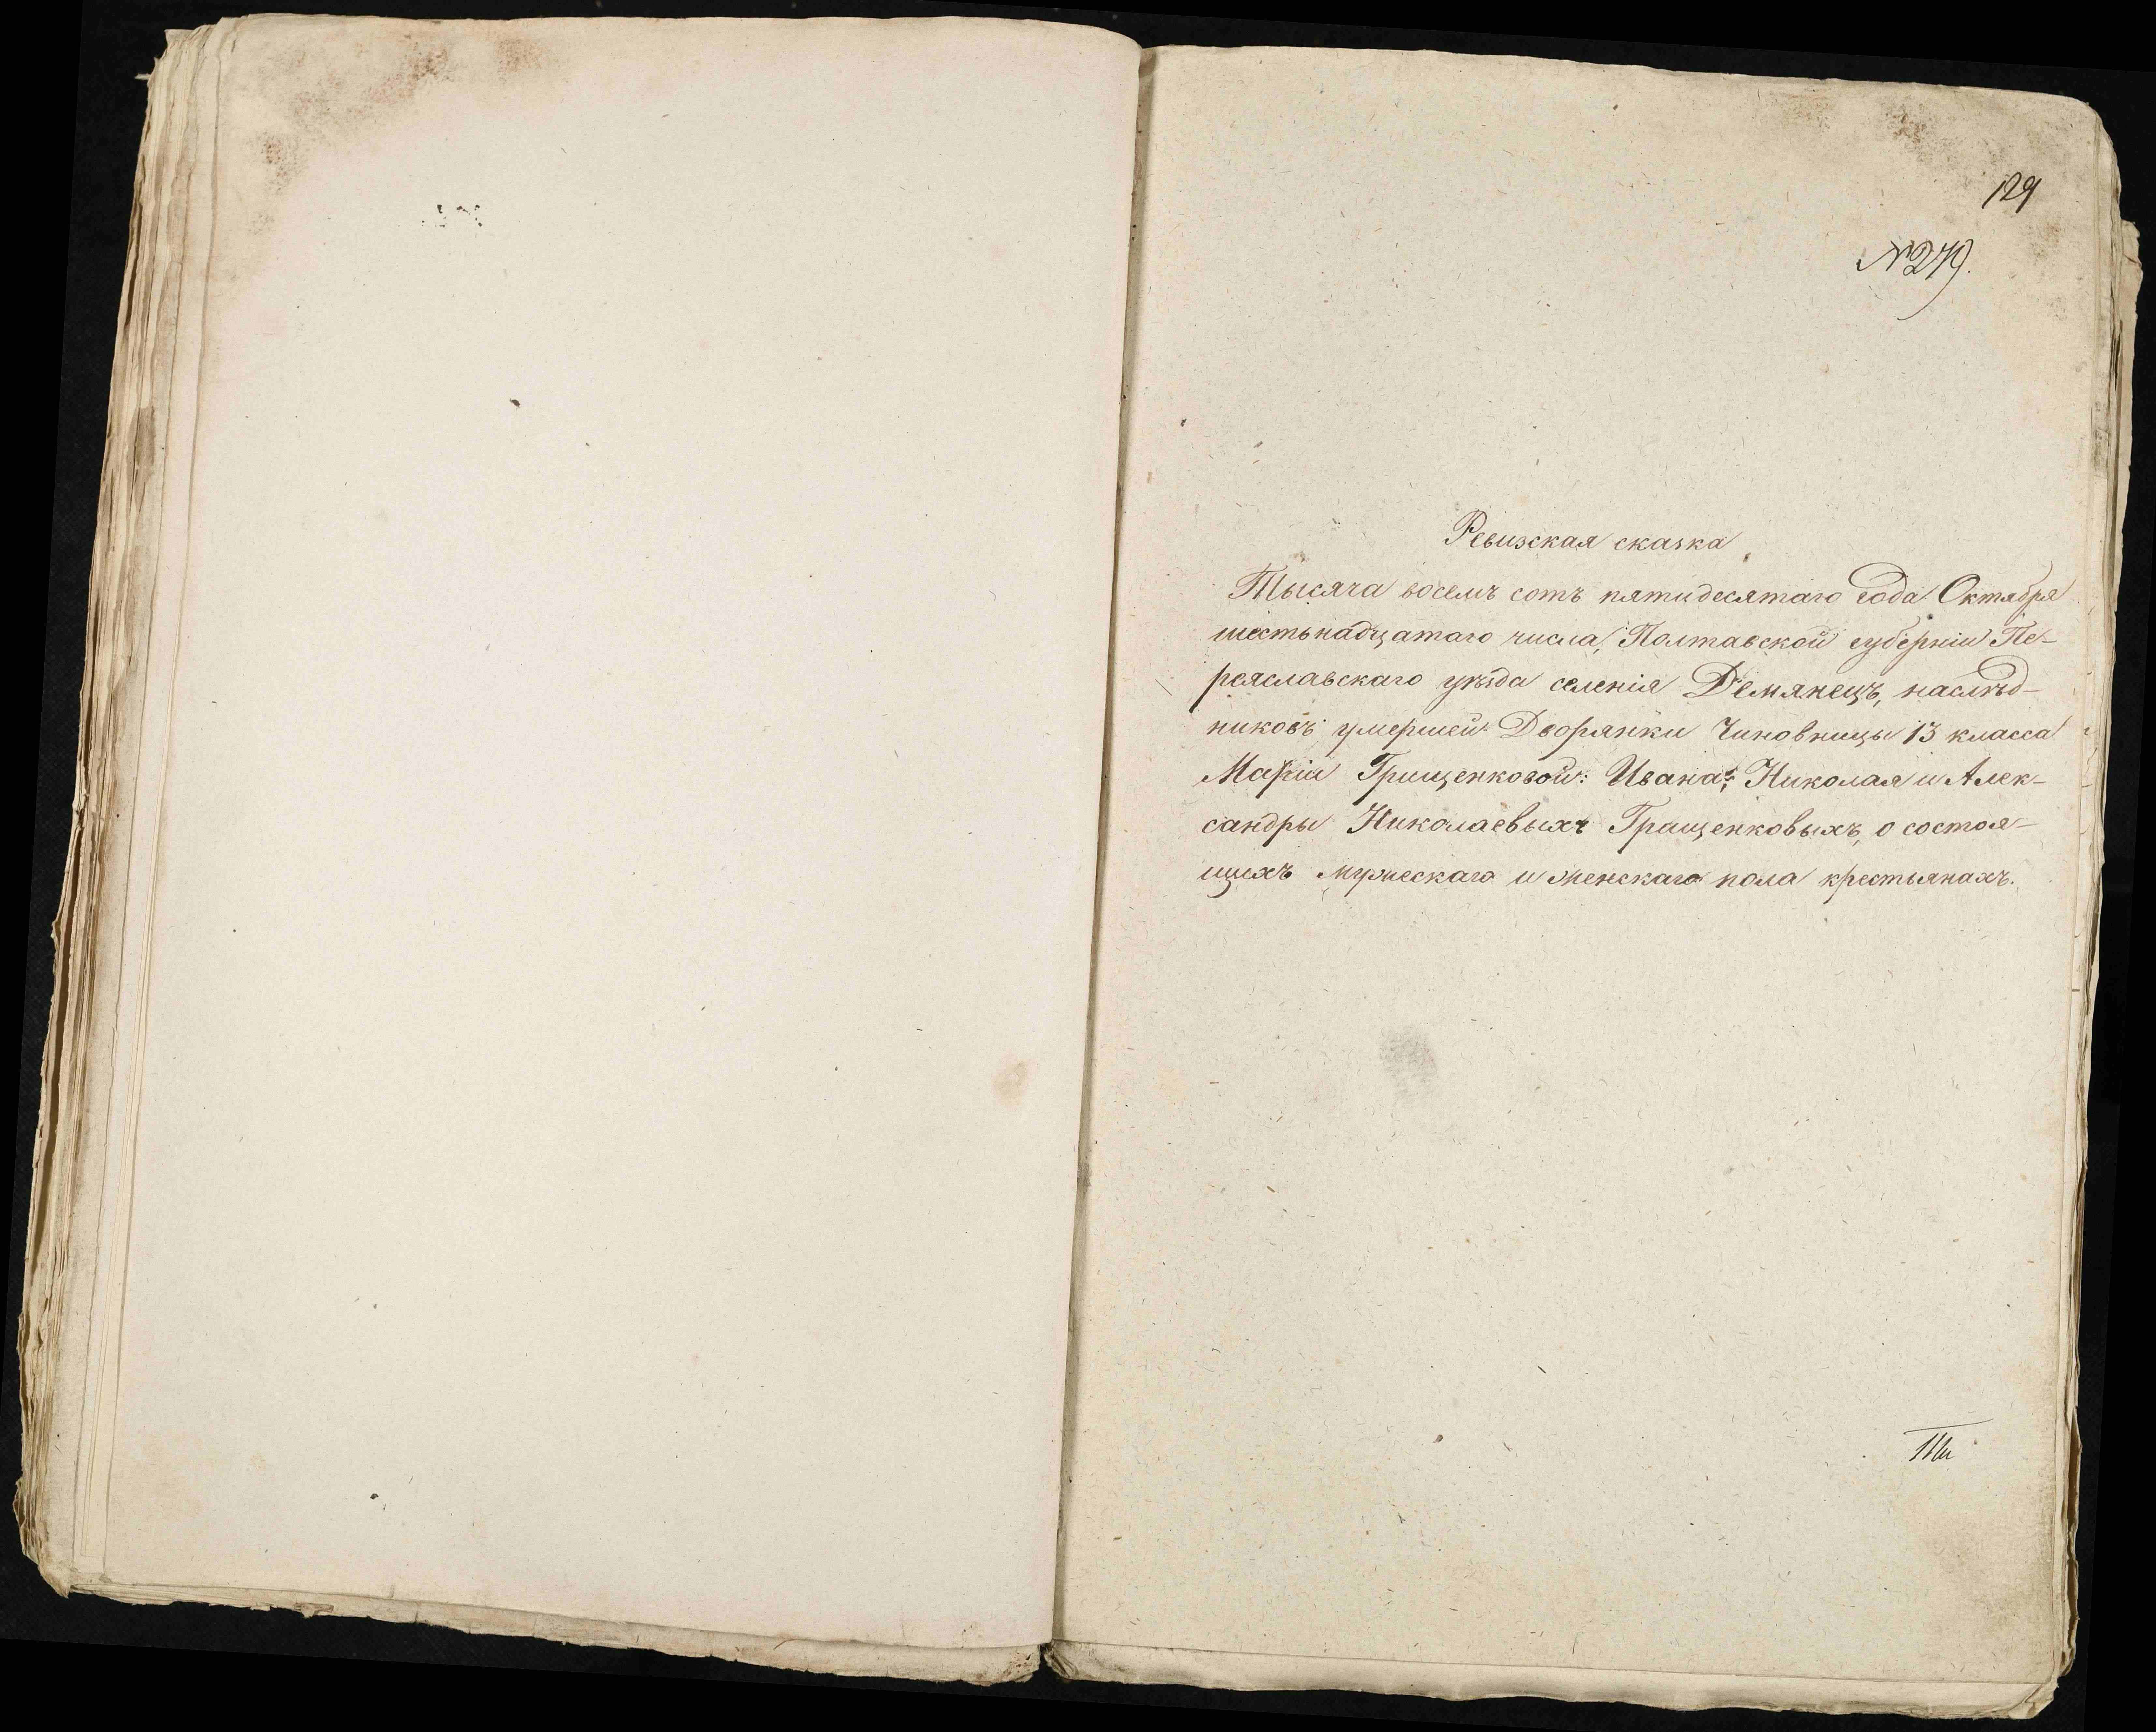 129
№279.
Ревизская сказка
Тысяча восемъ сотъ пятидесятаго года Октября
шестьнадцатаго числа, Полтавской губерніи Пе-
реяславскаго уѣзда селенія Демянецъ, наслѣд-
никовъ умершей Дворянки Чиновницы 13 класса
Маріи Грищенковой: Ивана, Николая и Алек-
сандры Николаевыхъ Гращенковыхъ, о состоя-
щихъ мужескаго и женскаго пола крестьянахъ.